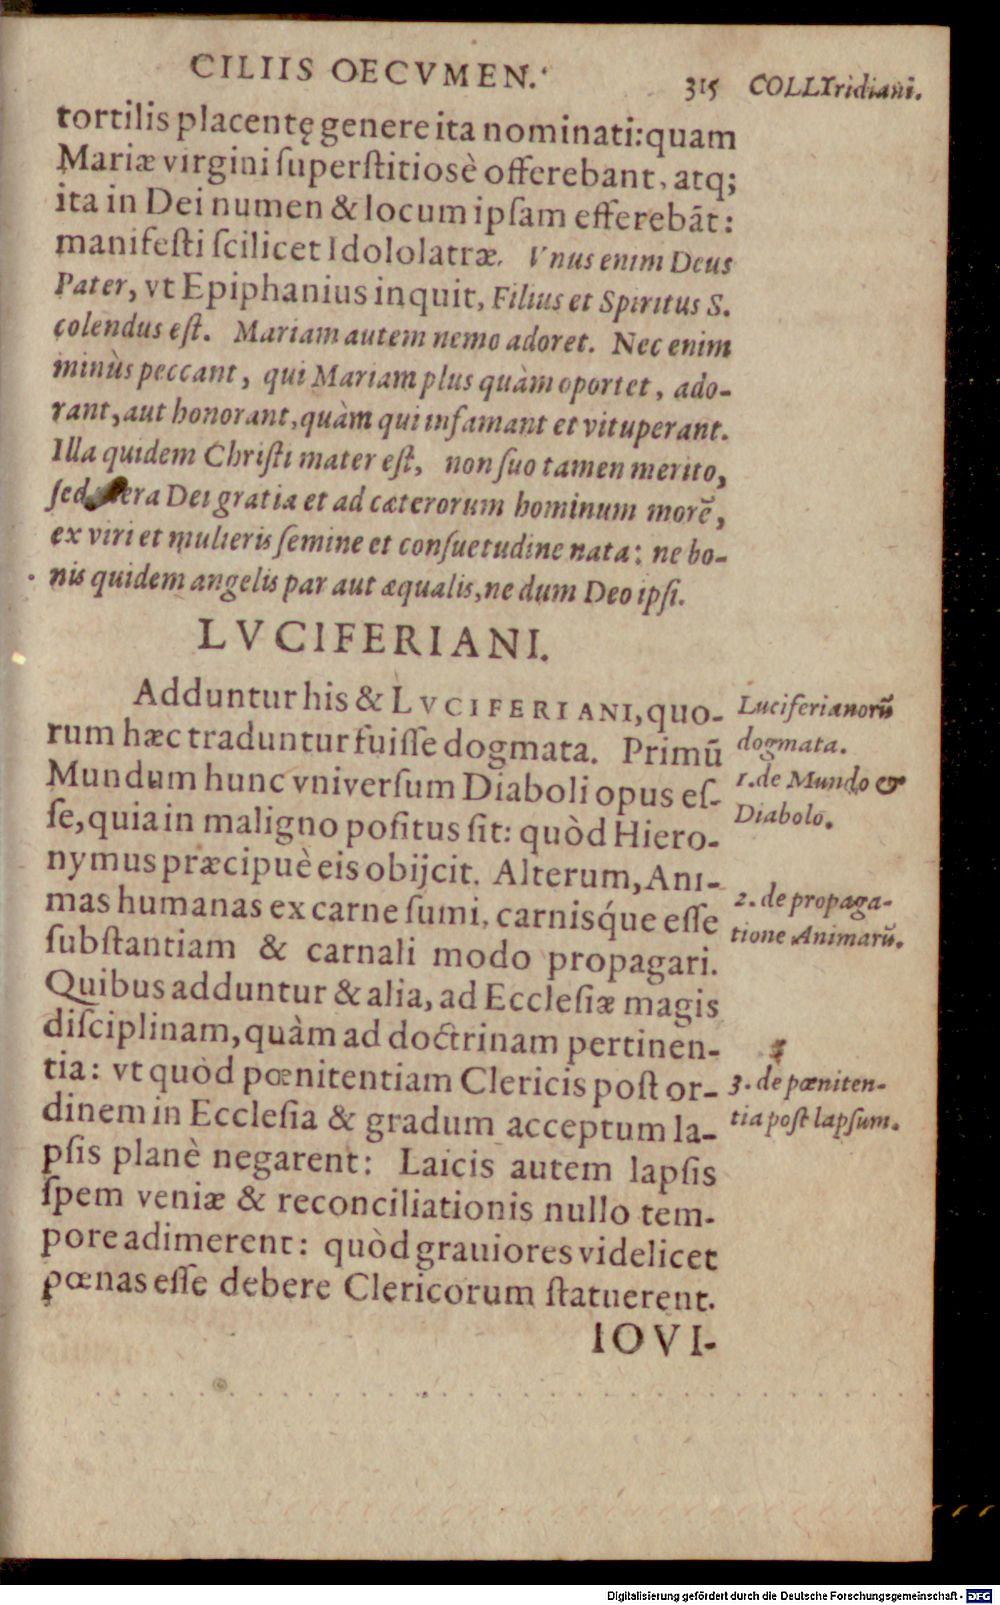 CILIIS OECVMEN. 315 COLLYridiani.
tortilis placentę genere ita nominati: quam
Mariæ virgini ſuperſtitiosè offerebant, atq;
ita in Dei numen & locum ipſam efferebāt:
manifeſti ſcilicet Idololatræ. Vnus enim Deus
Pater, vt Epiphanius inquit, Filius et Spiritus S.
colendus eſt. Mariam autem nemo adoret. Nec enim
minùs peccant, qui Mariam plus quàm oportet, ado-
rant, aut honorant, quàm qui infamant et vituperant.
Illa quidem Chriſti mater eſt, non ſuo tamen merito,
ſed mera Dei gratia et ad cæterorum hominum morē,
ex viri et mulieris ſemine et conſuetudine nata: ne bo-
nis quidem angelis par aut æqualis, ne dum Deo ipſi.
LVCIFERIANI.
Adduntur his & LVCIFERIANI, quo-
rum hæc traduntur fuiſſe dogmata. Primū
Mundum hunc vniverſum Diaboli opus eſ-
ſe, quia in maligno poſitus ſit: quòd Hiero-
nymus præcipuè eis obijcit. Alterum, Ani-
mas humanas ex carne ſumi, carnisq́ue eſſe
ſubſtantiam & carnali modo propagari.
Quibus adduntur & alia, ad Eccleſiæ magis
diſciplinam, quàm ad doctrinam pertinen-
tia: vt quòd pœnitentiam Clericis poſt or-
dinem in Eccleſia & gradum acceptum la-
pſis planè negarent: Laicis autem lapſis
ſpem veniæ & reconciliationis nullo tem-
pore adimerent: quòd grauiores videlicet
pœnas eſſe debere Clericorum ſtatuerent.
IOVI-
Luciferianorū
dogmata.
1. de Mundo &
Diabolo.
2. de propaga-
tione Animarū.
3. de pœniten-
tia poſt lapſum.
Digitalisierung gefördert durch die Deutsche Forschungsgemeinschaft - DFG